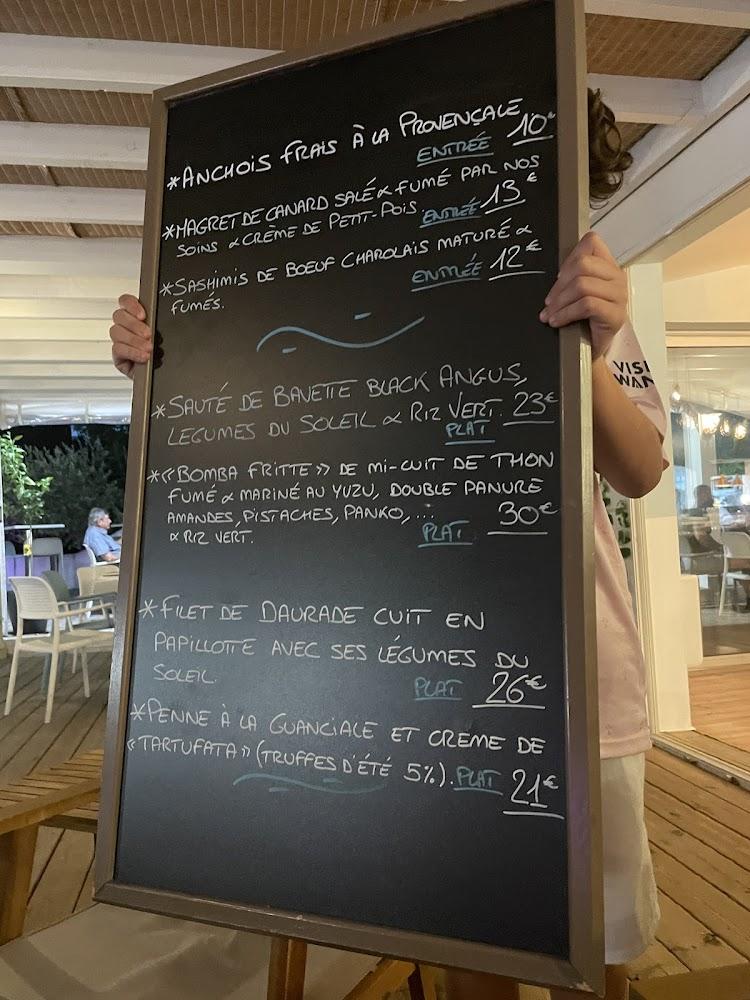 *ANCHOIS FRAIS À LA PROVENÇALE
ENTRÉE 10€
*MAGRET DE CANARD SALÉ & FUMÉ PAR NOS
SOINS & CRÈME DE PETIT-POIS ENTRÉE 13€
*SASHIMIS DE BOEUF CHAROLAIS MATURÉ &
FUMÉS. ENTRÉE 12€
*SAUTÉ DE BAVETTE BLACK ANGUS,
LEGUMES DU SOLEIL & RIZ VERT. 23€
PLAT
*«BOMBA FRITTE» DE MI-CUIT DE THON
FUMÉ & MARINÉ AU YUZU, DOUBLE PANURE
AMANDES, PISTACHES, PANKO, ...
& RIZ VERT. PLAT 30€
*FILET DE DAURADE CUIT EN
PAPILLOTTE AVEC SES LÉGUMES DU
SOLEIL. PLAT 26€
*PENNE À LA GUANCIALE ET CREME DE
«TARTUFATA» (TRUFFES D'ÉTÉ 5%). PLAT 21€